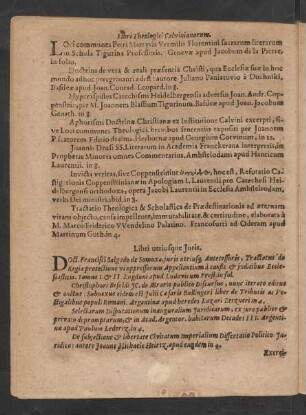 Libri Theologici Calvinianorum.
LOci communes Petri Martyris Vermilii Florentini sacrarum literarum
in Schola Tigurina Professoris. Genevæ apud Jacobum de la Pierre,
in folio.
Doctrina de vera & reali præsentia Christi, qua Ecclesiæ suæ in hoc
mundo adhuc peregrinanti adest: autore Juliano Poniatovio à Duchniki,
Basileæ apud Joan. Conrad. Leopard. in 8.
Hyperaspistes Catechismi Heidelbergensis adversus Joan. Andr. Coppenstein:
apud M. Joannem Blassium Tigurinum. Basileæ apud Joan. Jacobum
Genath. in 8.
Aphorismi Doctrinæ Christianæ ex Institutione Calvini excerpti, sive
Loci communes Theologici, brevibus sententiis expositi per Joannem
Piscatorem. Editio tertia. Herbornæ apud Georgium Corvinum, in 12.
Joannis Drusii SS. Literarum in Academia Franckerana Interpretis, in
Prophetas Minores omnes Commentarius. Amstelodami apud Henricum
Laurentii. in 8.
Invicta veritas, sive Coppensteinius hoc est, Refutatio Castigationis
Coppensteinianæ in Apologiam L. Laurentii pro Catechesi Heidelbergensi
orthodoxa, opera Jacobi Laurentii in Ecclesia Amstelodam.
verbi Dei ministri. ibid. in 8.
Tractatio Theologica & Scholastica de Prædestinatione ad æternam
vitam objecto, causa impellente, immutabilitate, & certitudine, elaborata à
M. Marco Friderico VVendelino Palatino. Francofurti ad Oderam apud
Martinum Guthen in 4.
Libri utriusque Juris.
DOct. Francisci Salgado de Somoza, juris utriusq. Antecessoris, Tractatus de
Regia protectione vi oppressorum Appellantium à causis & judicibus Ecclesiasticis.
Tomus I. & II. Lugduni apud Laurentium Prost in fol.
Christophori Besoldi JC. de Ærario publico Discursus, nunc iterato editus
& auctus. Subnexus eidem est Julii Cæsaris Bullingeri liber de Tributis ac Vectigalibus
populi Romani. Argentinæ apud heredes Lazari Zetzneri in 4.
Selectarum Disputationum inauguralium Juridicarum, ex jure publico &
privato depromptarum, & in Acad. Argentor. habitarum Decades III. Argentinæ
apud Paulum Ledertz, in 4.
De subjectione & libertate Civitatum Imperialium Dissertatio Politico-Juridica:
autore Joanne Michaele apud eundem in 4.
Exerci-